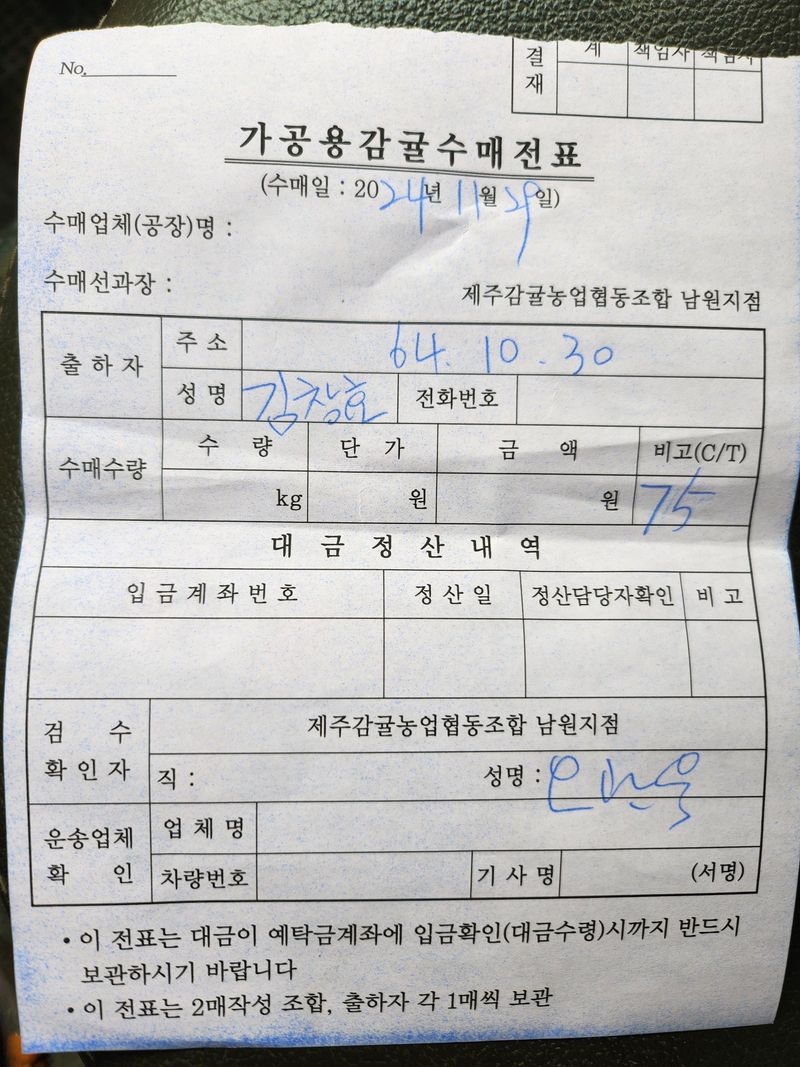 No.
결재 계 책임자 책임자
가공용감귤수매전표
(수매일 : 2024년 11월 29일)
수매업체(공장)명 :
수매선과장 :
제주감귤농업협동조합 남원지점
출하자 주소 64. 10. 30
성명 김창호 전화번호
수매수량 수량 단가 금액 비고(C/T)
kg 원 원 75
대금정산내역
입금계좌번호 정산일 정산담당자확인 비고
검수확인자 제주감귤농업협동조합 남원지점
직 : 성명 :
운송업체확인 업체명
차량번호 기사명 (서명)
• 이 전표는 대금이 예탁금계좌에 입금확인(대금수령)시까지 반드시
보관하시기 바랍니다
• 이 전표는 2매작성 조합, 출하자 각 1매씩 보관